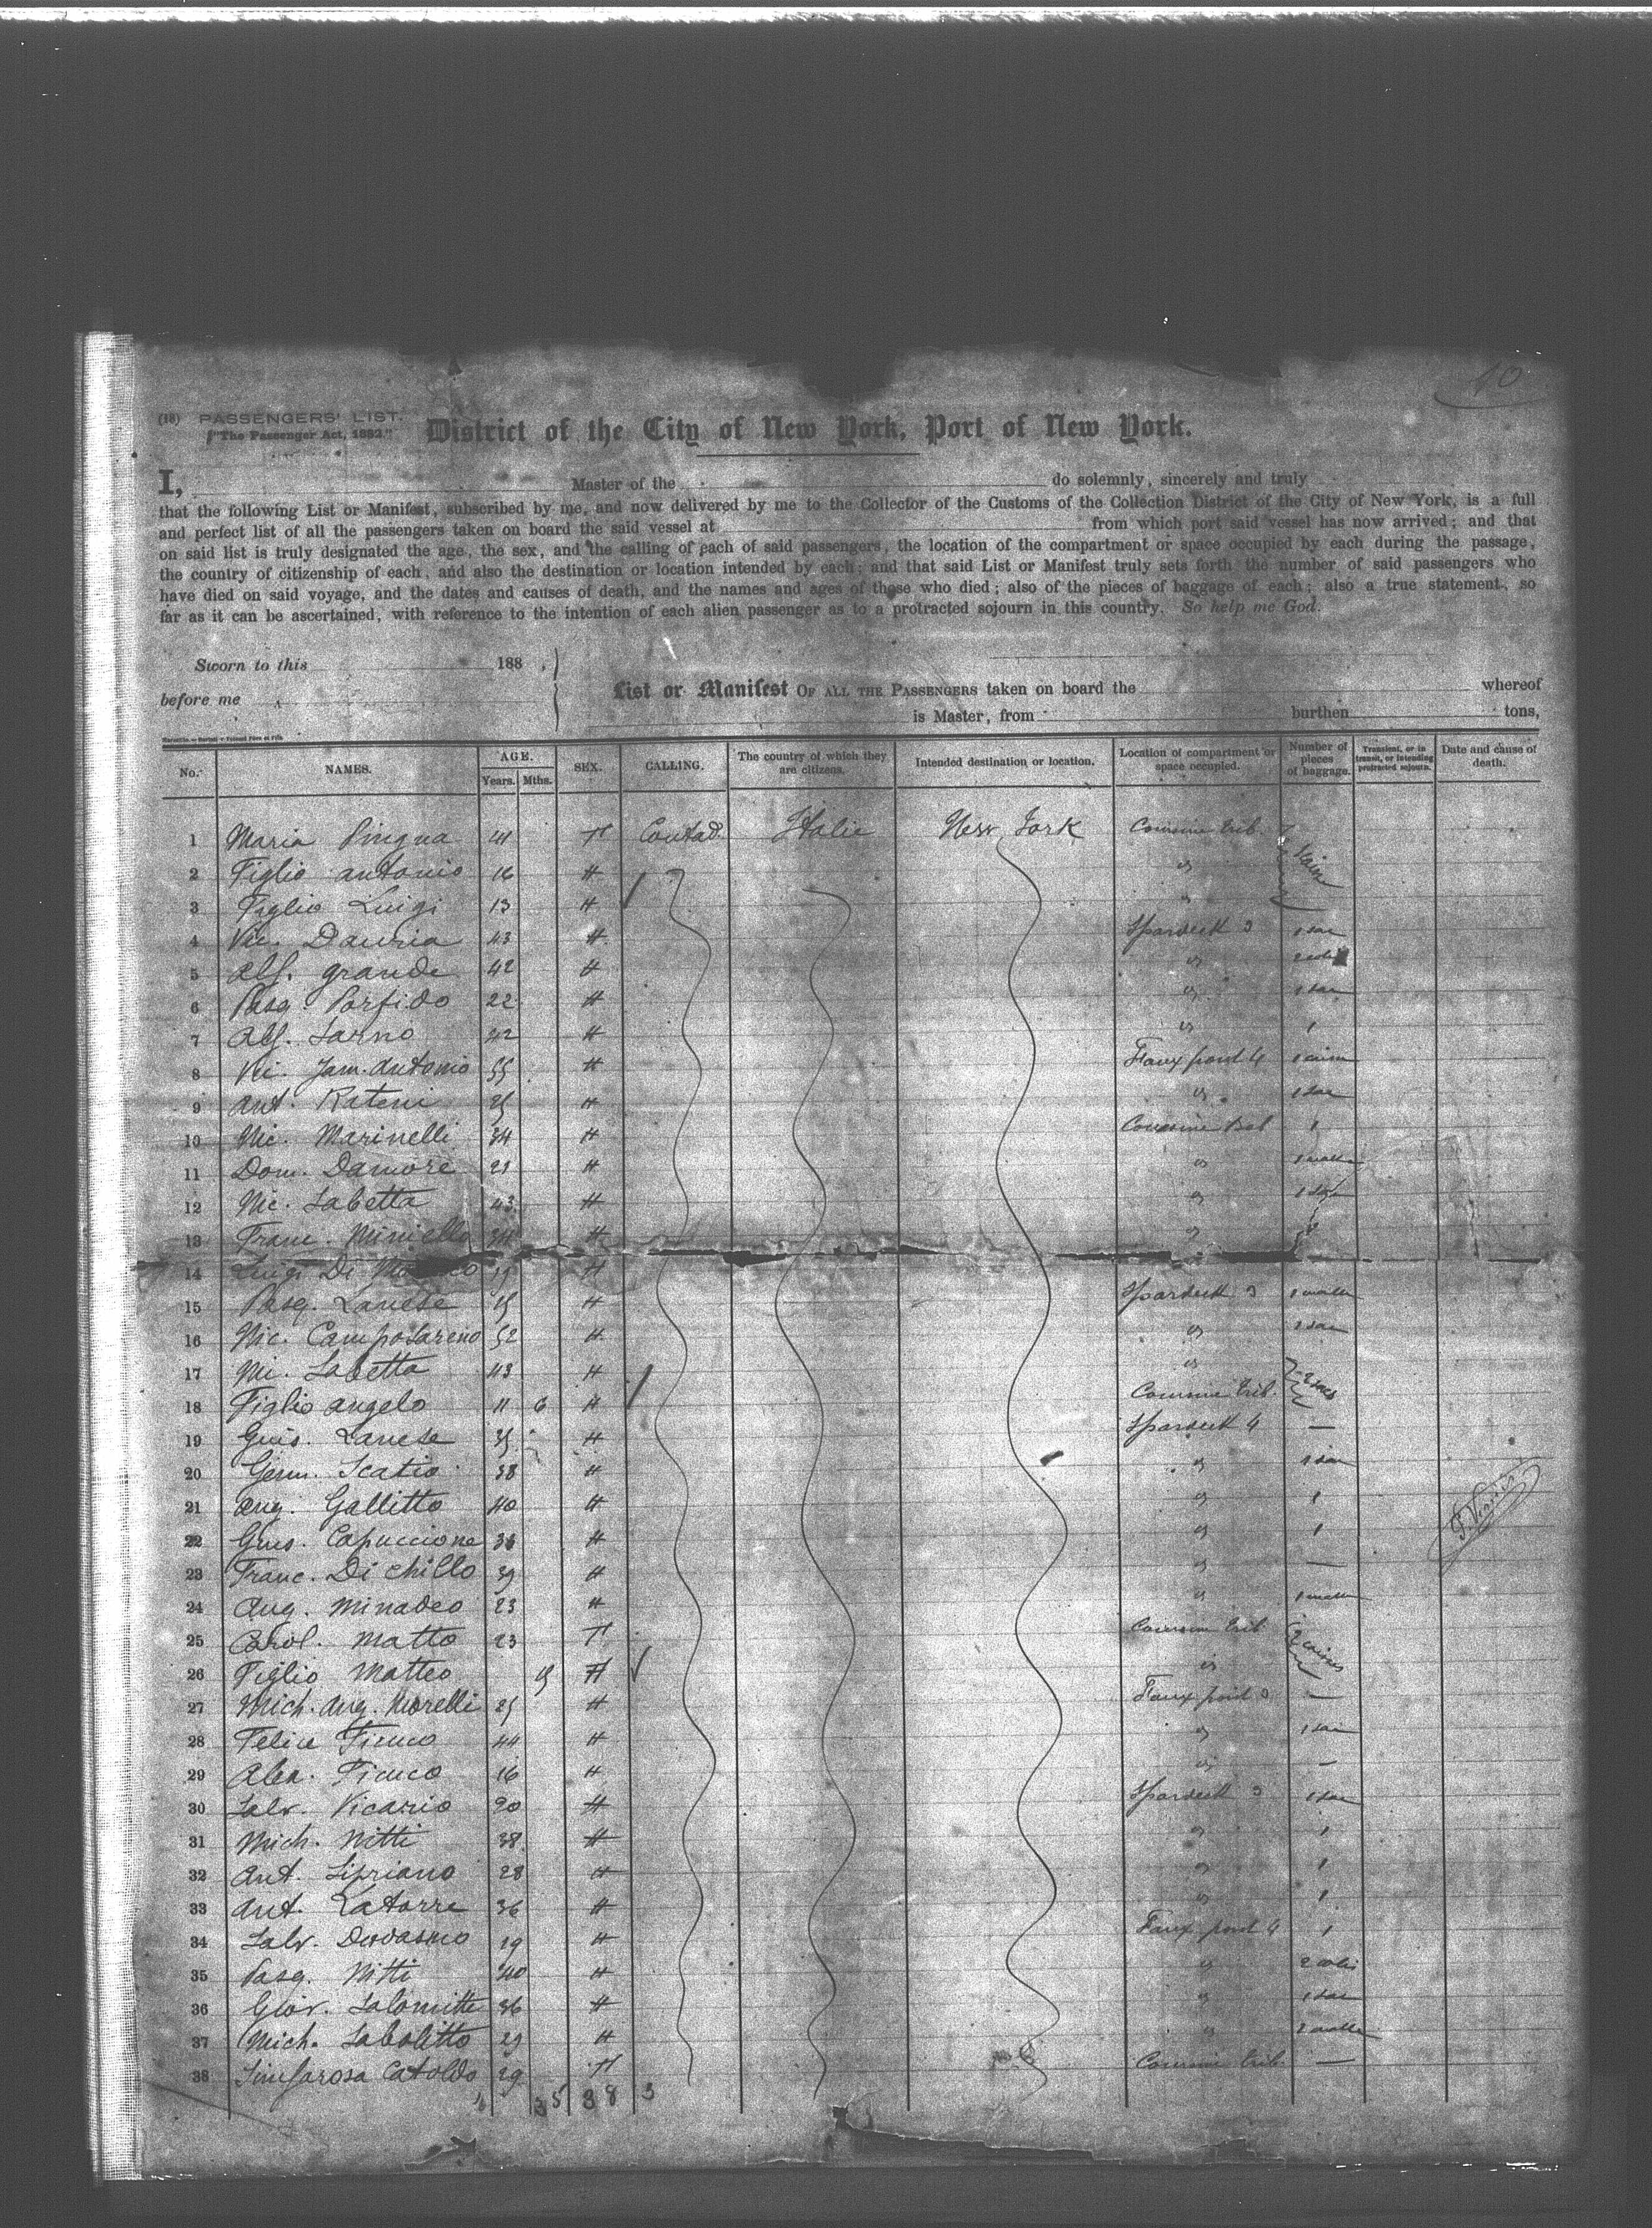 10
(18) PASSENGERS' LIST. District of the City of New York, Port of New York.
"The Passenger Act, 1882"
I, Master of the do solemnly, sincerely and truly
that the following List or Manifest, subscribed by me, and now delivered by me to the Collector of the Customs of the Collection District of the City of New York, is a full
and perfect list of all the passengers taken on board the said vessel at from which port said vessel has now arrived; and that
on said list is truly designated the age, the sex, and the calling of each of said passengers, the location of the compartment or space occupied by each during the passage,
the country of citizenship of each, and also the destination or location intended by each; and that said List or Manifest truly sets forth the number of said passengers who
have died on said voyage, and the dates and causes of death, and the names and ages of those who died; also of the pieces of baggage of each; also a true statement, so
far as it can be ascertained, with reference to the intention of each alien passenger as to a protracted sojourn in this country. So help me God.
Sworn to this 188 ,
before me
List or Manifest OF ALL THE PASSENGERS taken on board the whereof
is Master, from burthen tons,
No. NAMES. AGE. Years. Mths. SEX. CALLING. The country of which they are citizens. Intended destination or location. Location of compartment or space occupied. Number of pieces of baggage. Transient, or in transit, or intending protracted sojourn. Date and cause of death.
1 Maria Pingua 41 F Contad. Italie New York
2 Figlio Antonio 16 H "
3 Figlio Luigi 13 H "
4 Vic. Dauria 43 H Spardeck 3 1 sac
5 Alf. Grande 42 H "
6 Pasq. Porfido 22 H " 1 sac
7 Alf. Sarno 42 H " 1
8 Antonio 55 H Faux pont 4
9 Ant. Rateni 25 H " 1 sac
10 Nic. Marinelli 34 H 1
11 Dom. Damore 23 H " 1 malle
12 Nic. Labetta 43 H "
13 Franc. Miniello 34 H "
14 Luigi Di H
15 Pasq. Lanese 15 H Spardeck 3 1 malle
16 Nic. Camposareno 52 H " 1 sac
17 Ni. Labetta 43 H " 2 sacs
18 Figlio Angelo 11 6 H
19 Gius. Lanese 35 H Spardeck 4 —
20 Germ. Scatio 38 H " 1 sac
21 Ang. Gallitto 40 H " 1
22 Gius. Capuccione 33 H " 1
23 Franc. Di Chillo 39 H " —
24 Aug. Minadeo 23 H " 1 malle
25 Carol. Matto 23 F 2 caisses
26 Figlio Matteo H "
27 Mich. Ang. Morelli 25 H Faux pont 3 —
28 Felice Ficuco 44 H " 1 sac
29 Ales. Ficuco 16 H " —
30 Salv. Vicario 20 H Spardeck 3 1 sac
31 Mich. Nitti 38 H " 1
32 Ant. Lipriano 28 H " 1
33 Ant. Latorre 36 H " 1
34 Salv. 19 H Faux pont 4 1
35 Pasq. Nitti 40 H " 2 colis
36 Giov. Salomitte 36 H " 1 sac
37 Mich. Sabolitto 29 H " 2 malle
38 Sinforosa Catoldo 29 F —
35 38 3